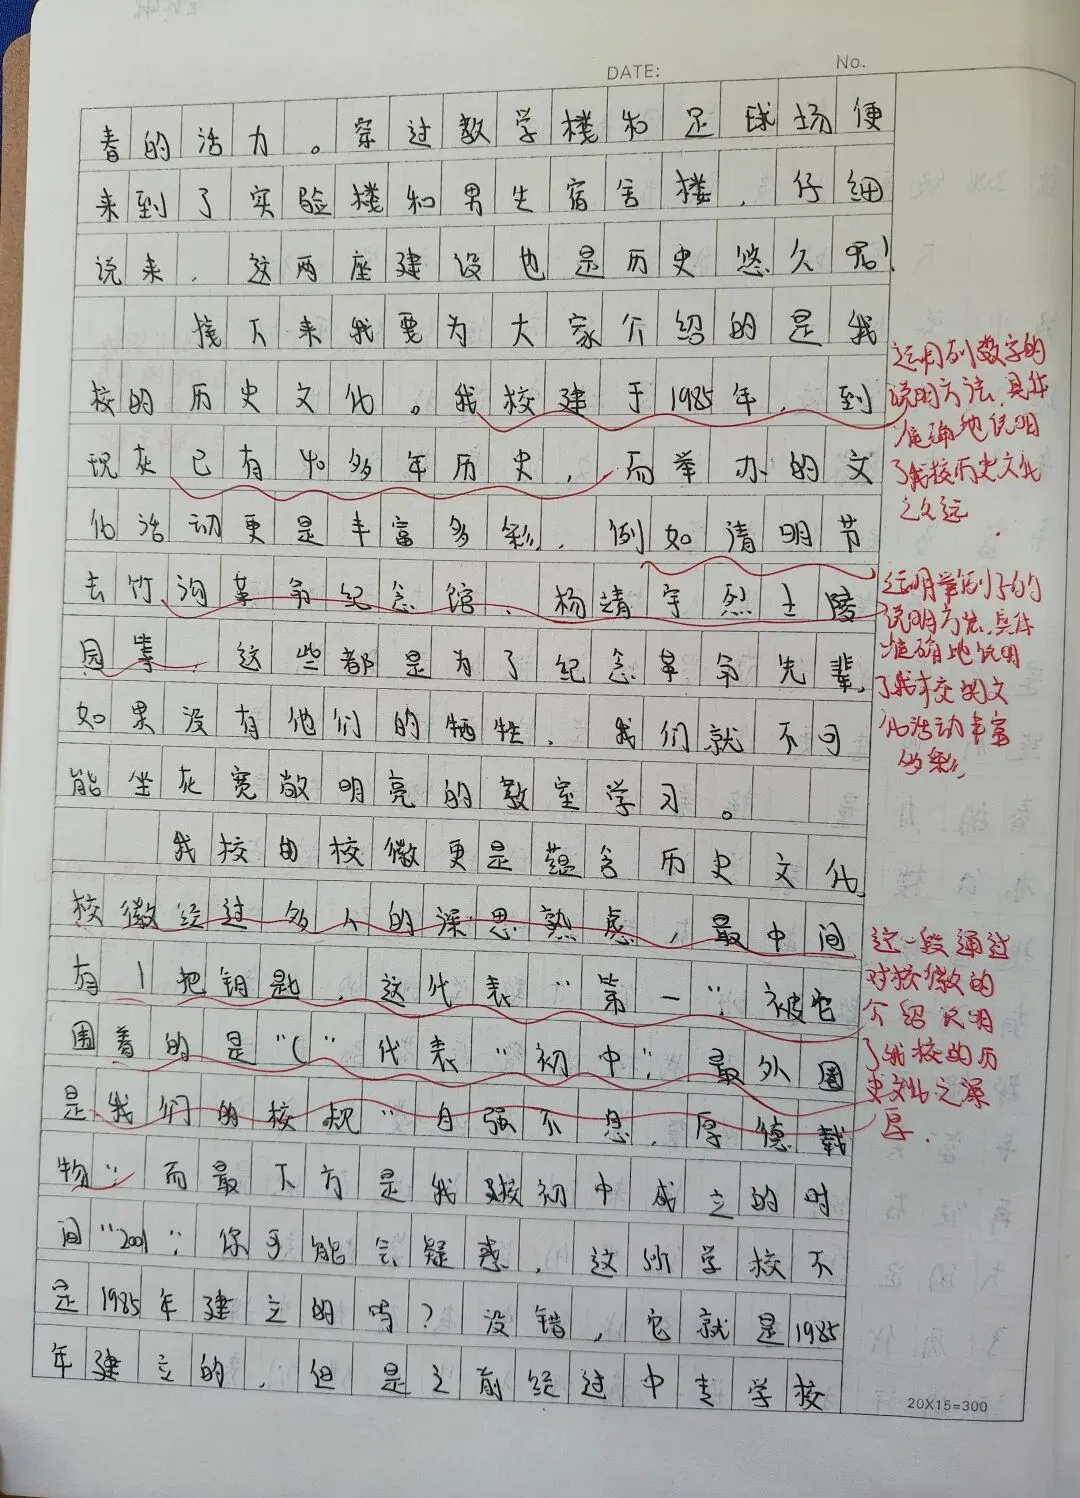 DATE:
No.
春的活力。穿过教学楼和足球场便
来到了实验楼和男生宿舍楼,仔细
说来,这两座建设也是历史悠久呢!
接下来我要为大家介绍的是我
校的历史文化。我校建于1985年,到
现在已有40多年历史,而举办的文
化活动更是丰富多彩,例如清明节
去竹沟革命纪念馆、杨靖宇烈士陵
园等,这些都是为了纪念革命先辈,
如果没有他们的牺牲,我们就不可
能坐在宽敞明亮的教室学习。
我校的校徽更是蕴含历史文化,
校徽经过多人的深思熟虑,最中间
有1把钥匙,这代表“第一”,被它
围着的是“(”代表“初中”,最外围
是我们的校规“自强不息,厚德载
物”,而最下方是我校初中成立的时
间“2001”,你可能会疑惑,这所学校不
是1985年建立的吗?没错,它就是1985
年建立的,但是之前经过中专学校
运用列数字的
说明方法,具体
准确地说明
了我校历史文化
之久远
运用举例子的
说明方法,具体
准确地说明
了我校的文
化活动丰富
多彩,
这一段通过
对校徽的
介绍说明
了我校的历
史文化之深
厚.
20X15=300